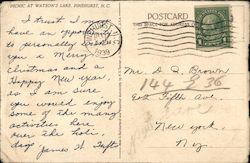 PICNIC AT WATSON'S LAKE, PINEHURST, N.C.
POSTCARD
I trust I may
have an opportunity
to personally
you a Merry
Christmas and a
Happy New Year,
as I am sure
you would enjoy
some of the many
activities here
over the holi-
days
James W. Tufts
1
Mr. D. R. Brown
Fifth Ave.
New York.
N.Y.